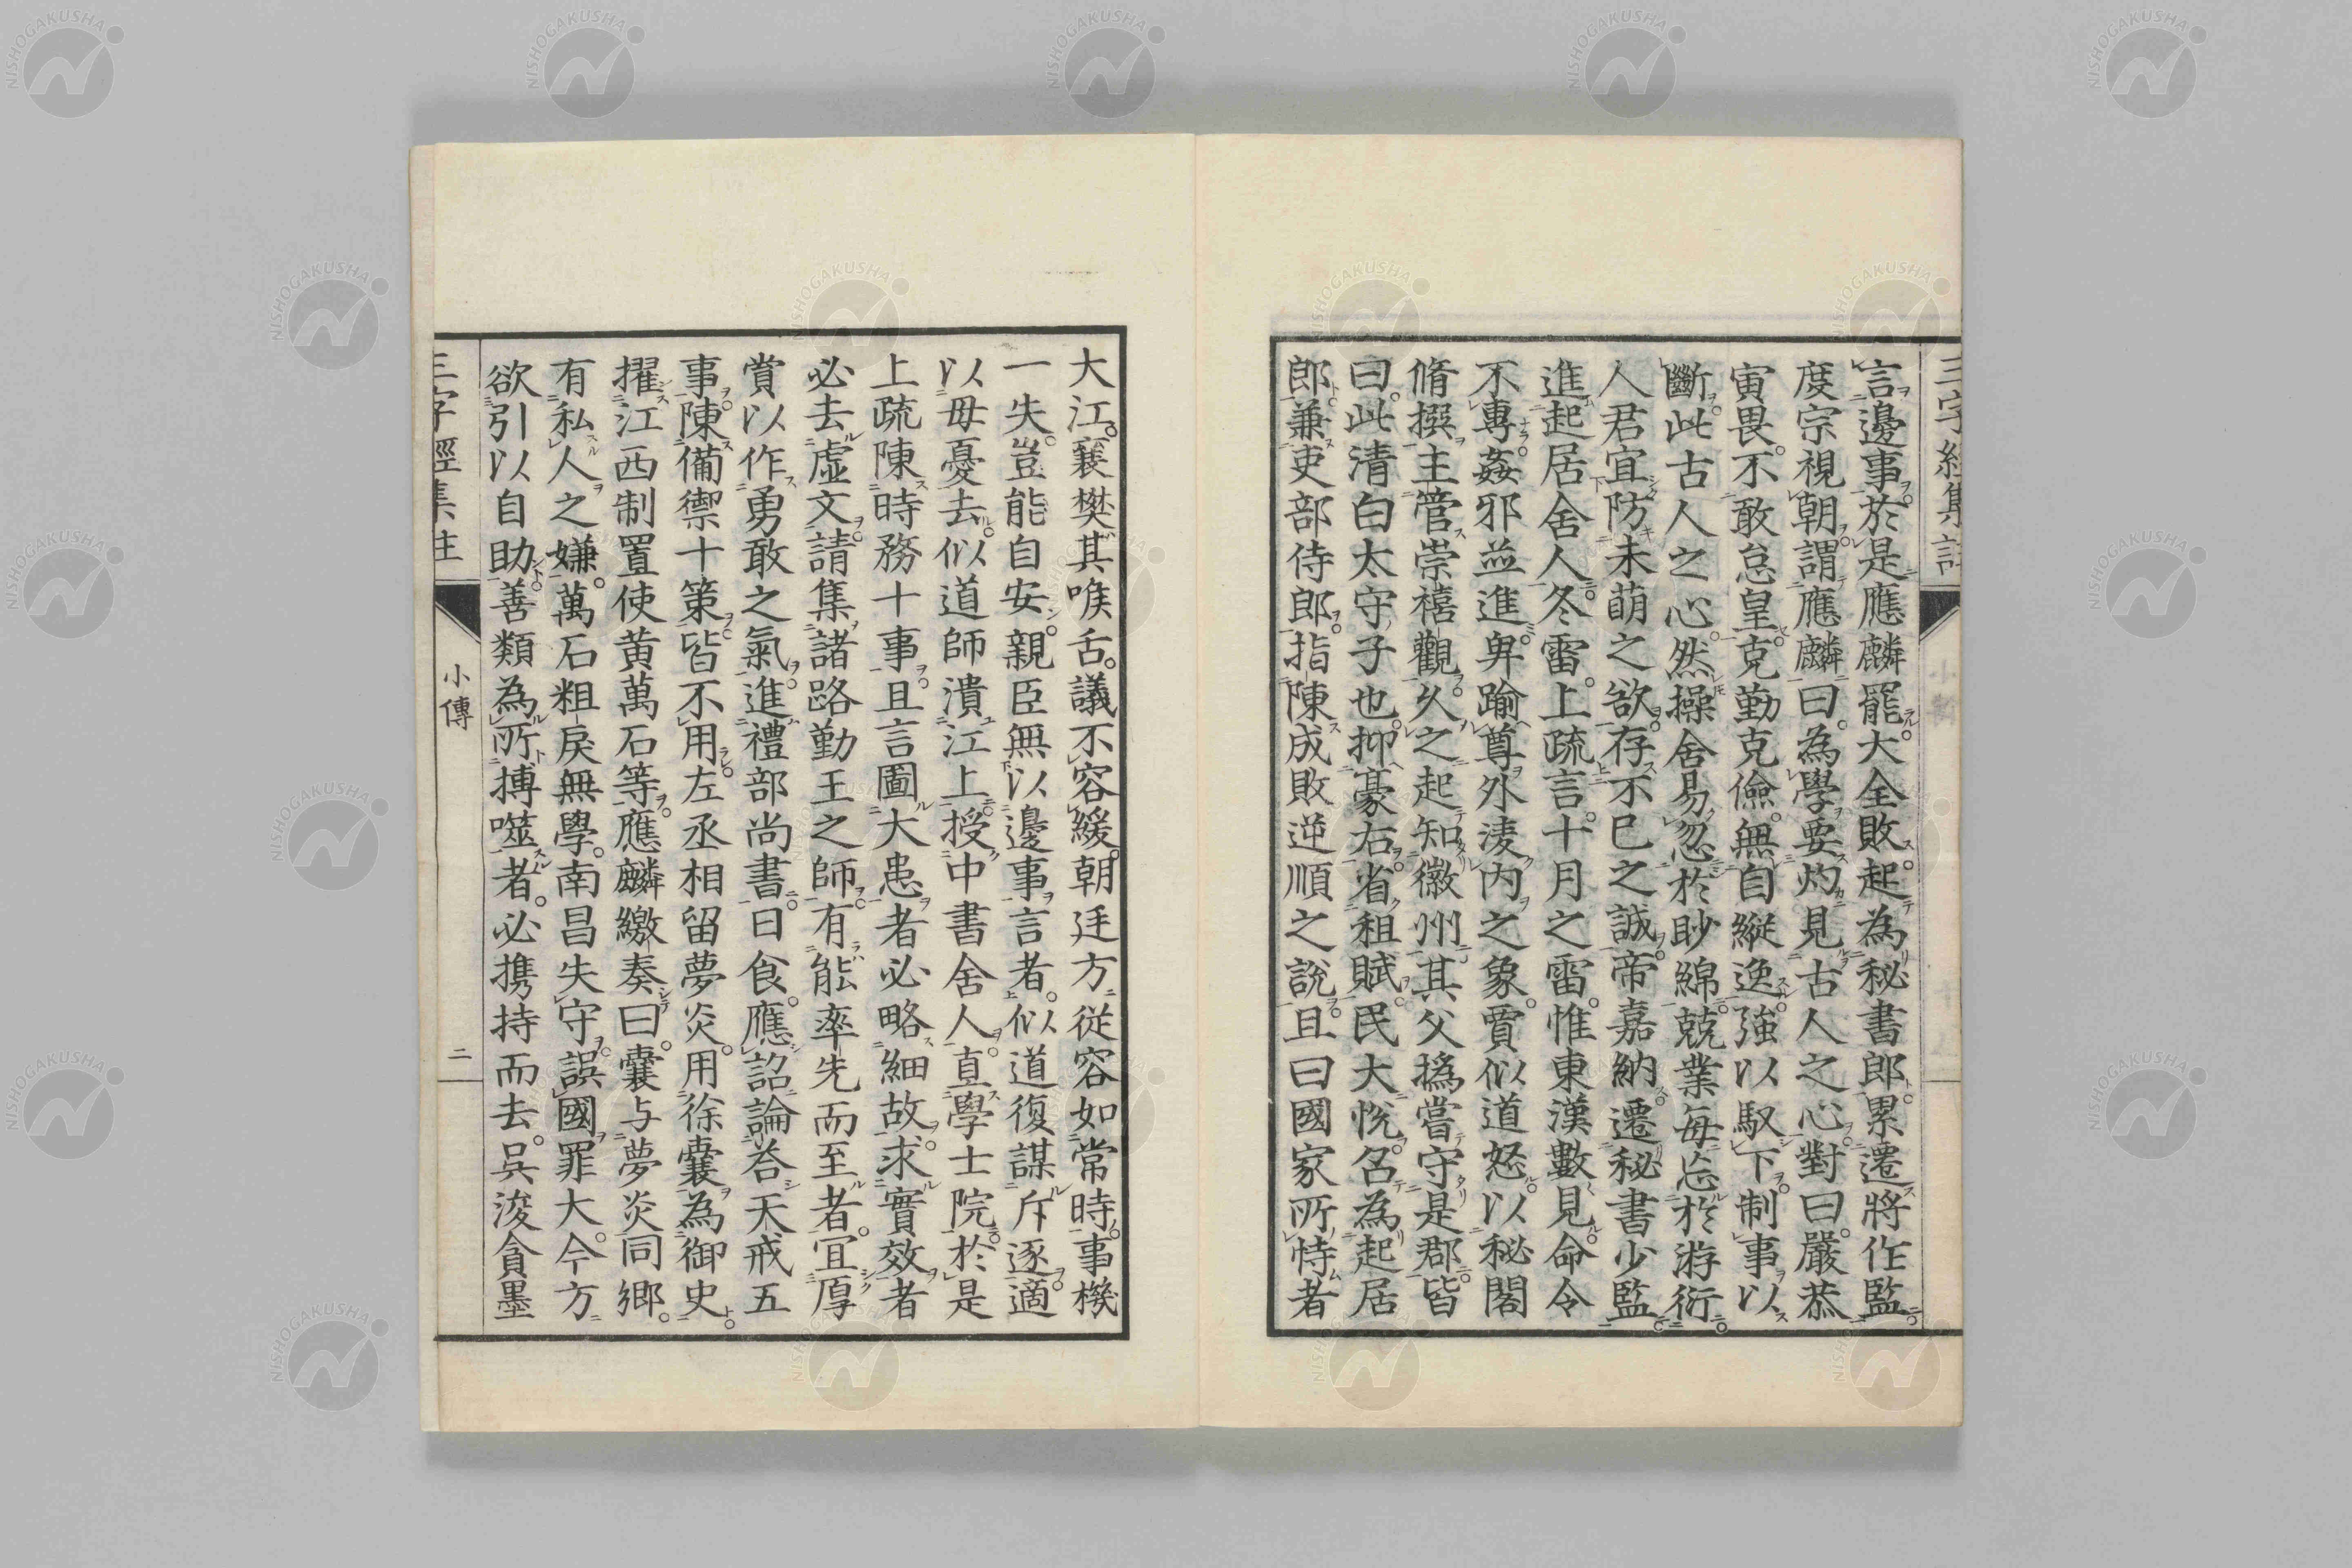 言邊事於是應麟罷大全敗起為秘書郎累遷將作監
度宗視朝謂應麟曰為學要灼見古人之心對曰嚴恭
寅畏不敢怠皇克勤克儉無自縱逸強以馭下制事以
斷此古人之心然操舍易忽於眇綿兢業每忘於游衍
人君宜防未萌之欲存不已之誠帝嘉納遷秘書少監
進起居舍人冬雷上疏言十月之雷惟東漢數見命令
不專姦邪並進卑踰尊外淩內之象賈似道怒以秘閣
脩撰主管崇禧觀久之起知徽州其父撝嘗守是郡皆
曰此清白太守子也抑豪右省租賦民大悅名為起居
郎兼吏部侍郎指陳成敗逆順之說且曰國家所恃者
大江襄樊其喉舌議不容緩朝廷方從容如常時事機
一失豈能自安親臣無以邊事言者似道復謀斥逐適
以母憂去似道師潰江上授中書舍人直學士院於是
上疏陳時務十事且言圖大患者必略細故求實效者
必去虛文請集諸路勤王之師有能率先而至者宜厚
賞以作勇敢之氣進禮部尚書日食應詔論荅天戒五
事陳備禦十策皆不用左丞相留夢炎用徐囊為御史
擢江西制置使黃萬石等應麟繳奏曰囊与夢炎同鄉
有私人之嫌萬石粗戾無學南昌失守誤國罪大今方
欲引以自助善類為所搏噬者必攜持而去吳浚貪墨
三字經集註
小傳
二
NISHOGAKUSHA